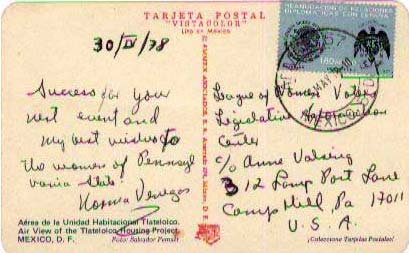 TARJETA POSTAL
"VISTACOLOR"
Lito en México
30/IV/78
Success for your
next event and
my best wishes to
the women of Pennsyl
vania State.
Norma Venegas
REANUDACION DE RELACIONES
DIPLOMATICAS CON ESPAÑA
MEXICO
League of Women Voters
Legislative Information
Center
c/o Anne
312 Lamp Post Lane
Camp Hill, Pa 17011
U.S.A.
Aérea de la Unidad Habitacional Tlatelolco.
Air View of the Tlatelolco Housing Project.
MEXICO, D. F.
Foto: Salvador
¡Coleccione Tarjetas Postales!